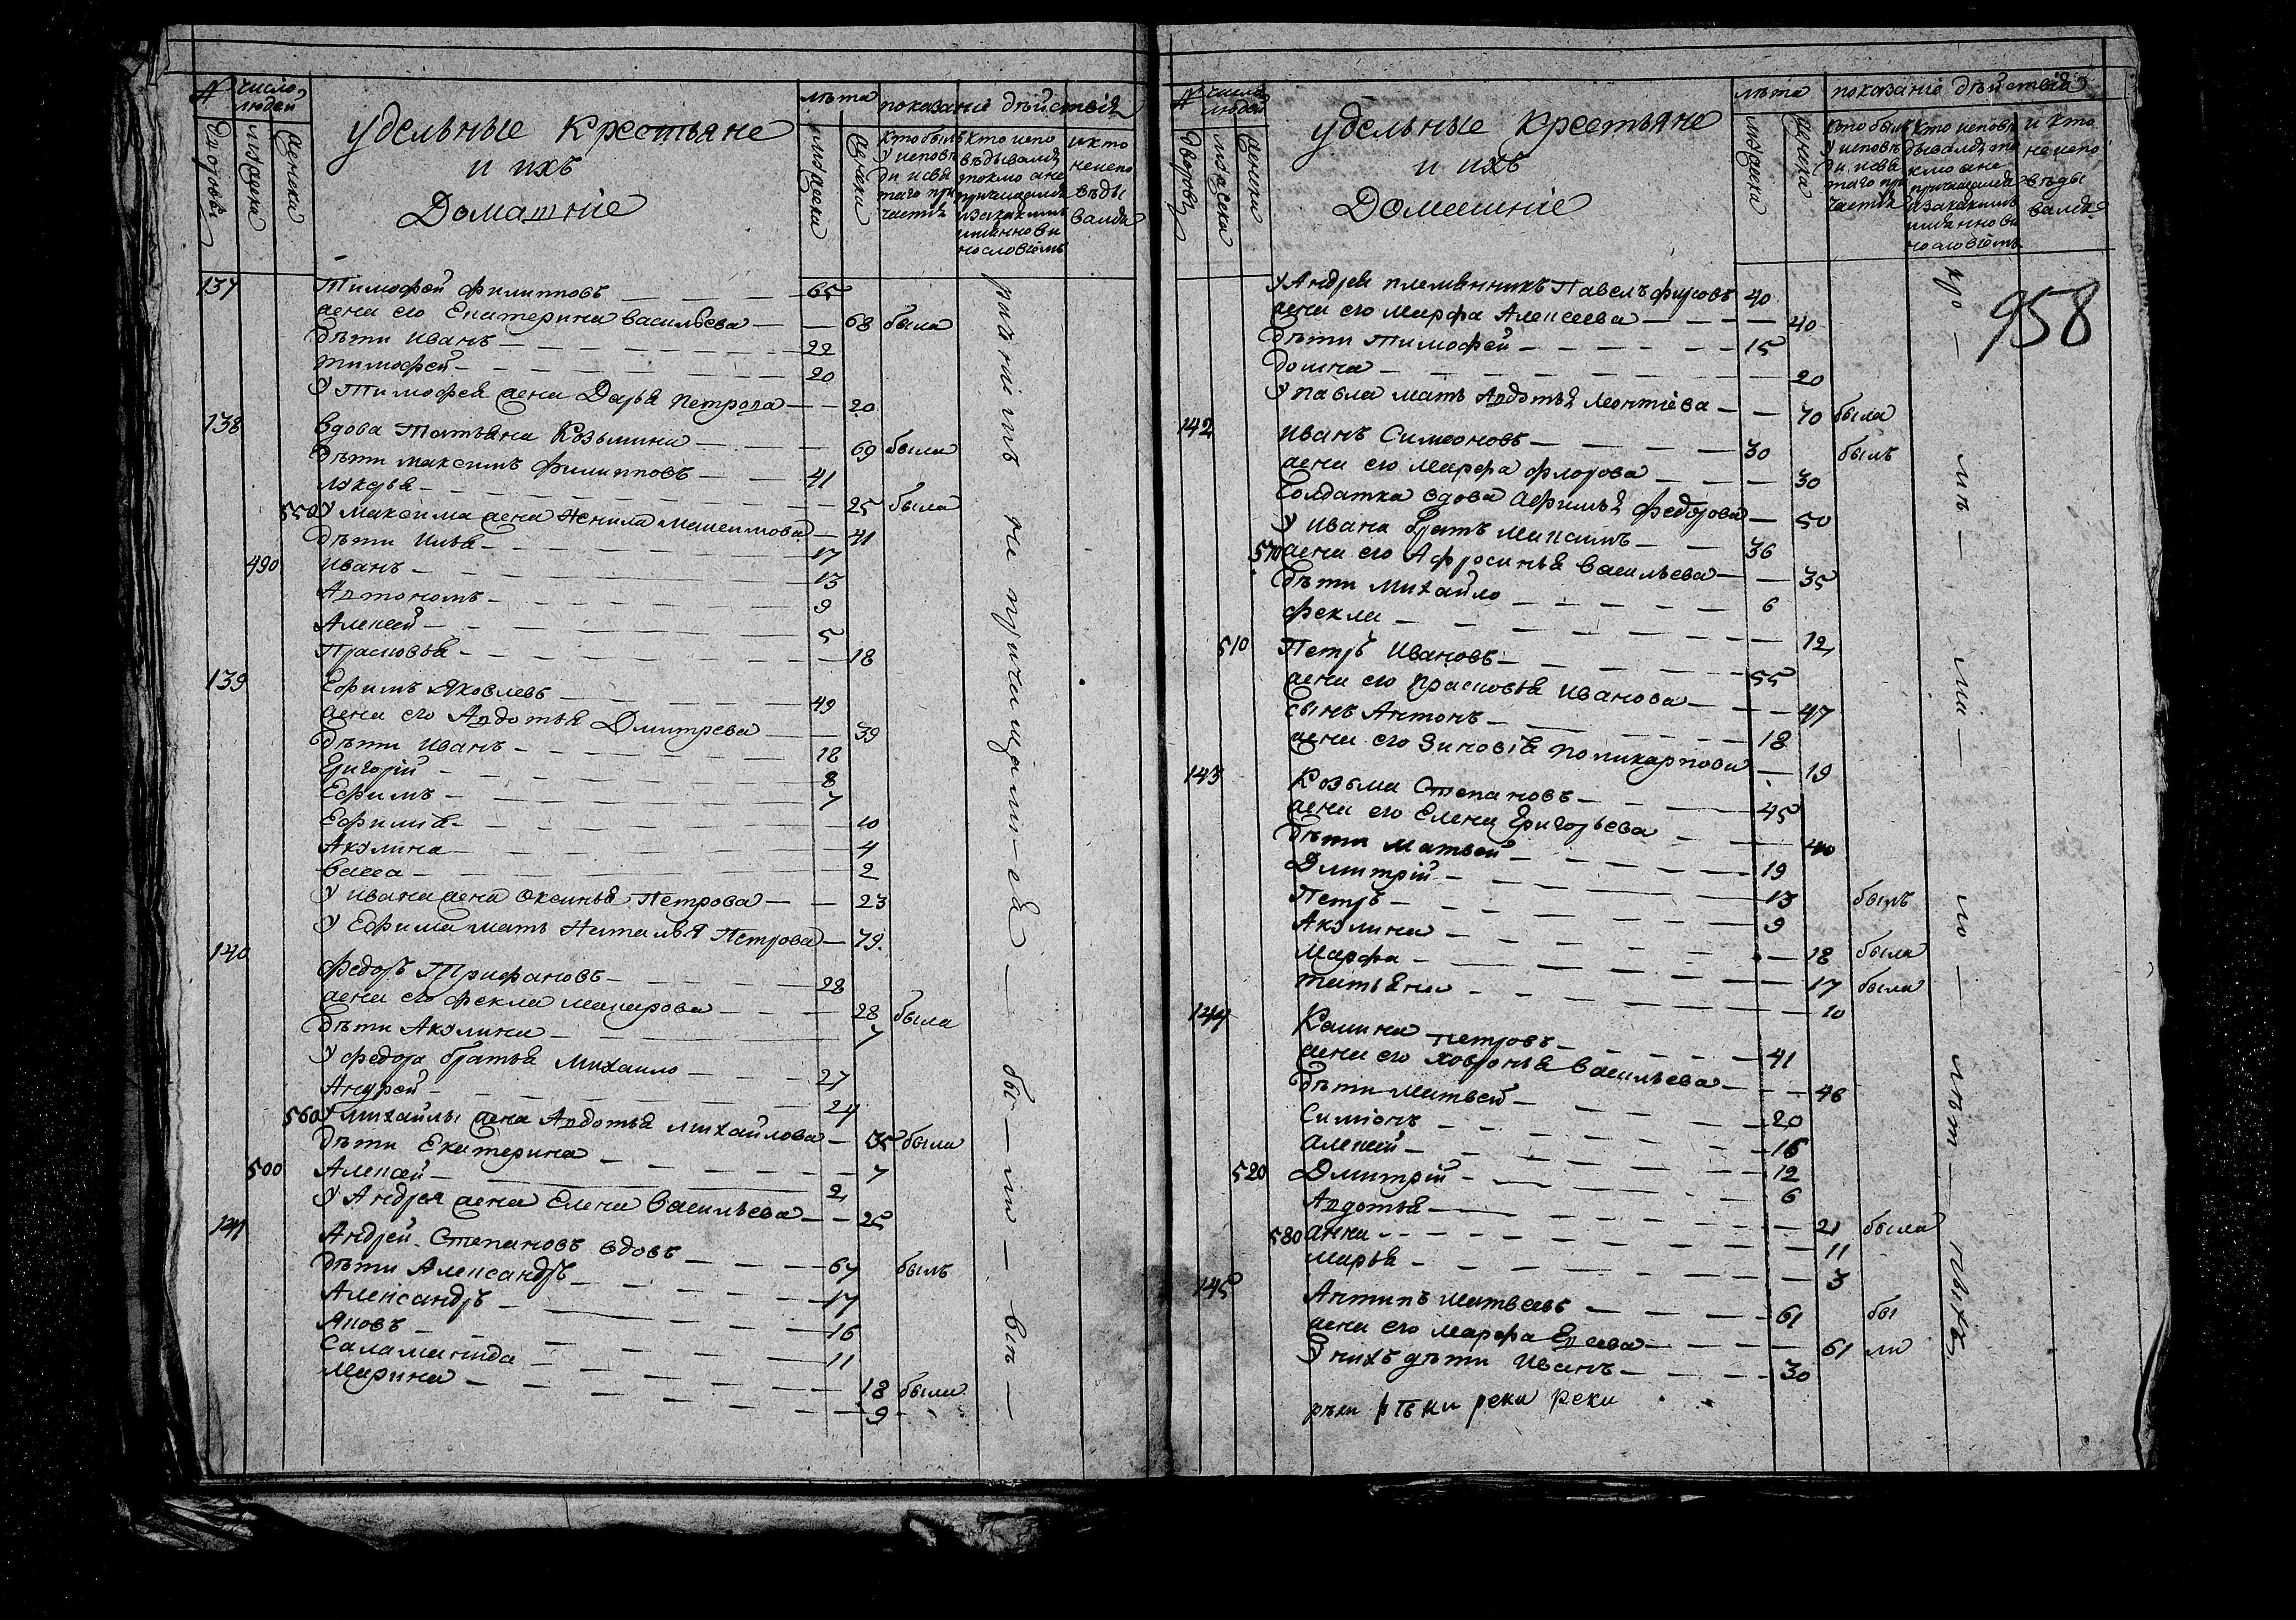 №
число людей
дворовъ
мужеска
женска
удельные крестьяне
и ихъ
Домашніе
лѣта
мужеска
женска
показаніе дѣйствія
кто былъ у исповѣди и святаго причастія
кто исповѣдывался токмо а не причащался и за какимъ имянно винословіемъ
и кто не исповѣдывался
137 Тимофей Филипповъ 65
жена его Екатерина Васильева 68 была
дѣти Иванъ 22
Тимофей 20
у Тимофея жена Дарья Петрова 20
138 вдова Татьяна Козьмина 69 была
дѣти Максимъ Филипповъ 41
Лукерья 25 была
550 у Максима жена Ненила 41
дѣти Илья 17
490 Иванъ 13
Артономъ 9
Алексей 5
Прасковья 18
139 Ефимъ Яковлевъ 49
жена его Авдотья Дмитрева 39
дѣти Иванъ 18
Григорій 8
Ефимъ 7
Ефимія 10
Акулина 4
Васса 2
у Ивана жена Оксинья Петрова 23
у Ефима мать Наталья Петрова 79
140 Федоръ Трифановъ 28
жена его Фекла Макарова 28 была
дѣти Акулина 7
у Федора братья Михаило 27
Андрей 24
560 у Михайлы жена Авдотья Михайлова 35 была
дѣти Екатерина 7
500 Алексей 2
у Андрея жена Елена Васильева 25
141 Андрей Степановъ вдовъ 67 былъ
дѣти Александръ 17
Александръ 16
Яковъ 11
Саламанида 18 была
Марина 9
не причащались бы ли вне
№
число людей
дворовъ
мужеска
женска
удельные крестьяне
и ихъ
Домашніе
лѣта
мужеска
женска
показаніе дѣйствія
кто былъ у исповѣди и святаго причастія
кто исповѣдывался токмо а не причащался и за какимъ имянно винословіемъ
и кто не исповѣдывался
958
у Андрея племянникъ Павелъ Фирсовъ 40
жена его Марфа Алексеева 40
дѣти Тимофей 15
Домна 20
у Павла мать Авдотья Леонтіева 70 была
142 Иванъ Симеоновъ 30 былъ
жена его Марфа Флорова 30
Солдатка вдова Афимья Федорова 50
у Ивана братъ Максимъ 36
570 жена его Афросинья Васильева 35
дѣти Михайло 6
Фекла 12
510 Петръ Ивановъ 55
жена его Прасковья Иванова 47
сынъ Антонъ 18
жена его Зиновія Поликарпова 19
143 Козьма Степановъ 45
жена его Елена Григорьева 40
дѣти Матвей 19
Дмитрій 13
Петръ 9 былъ
Акулина 18 была
Марфа 17 была
Татьяна 10
144 Калина Петровъ 41
жена его Ховронья Васильева 46
дѣти Матвей 20
Симіонъ 16
Алексей 12
520 Дмитрій 6
Авдотья 21 была
580 Анна 11
Марья 3
145 Антипъ Матвеевъ 61 бы
жена его Марфа 61 ли
у нихъ дѣти Иванъ 30
рѣки рѣки реки реки